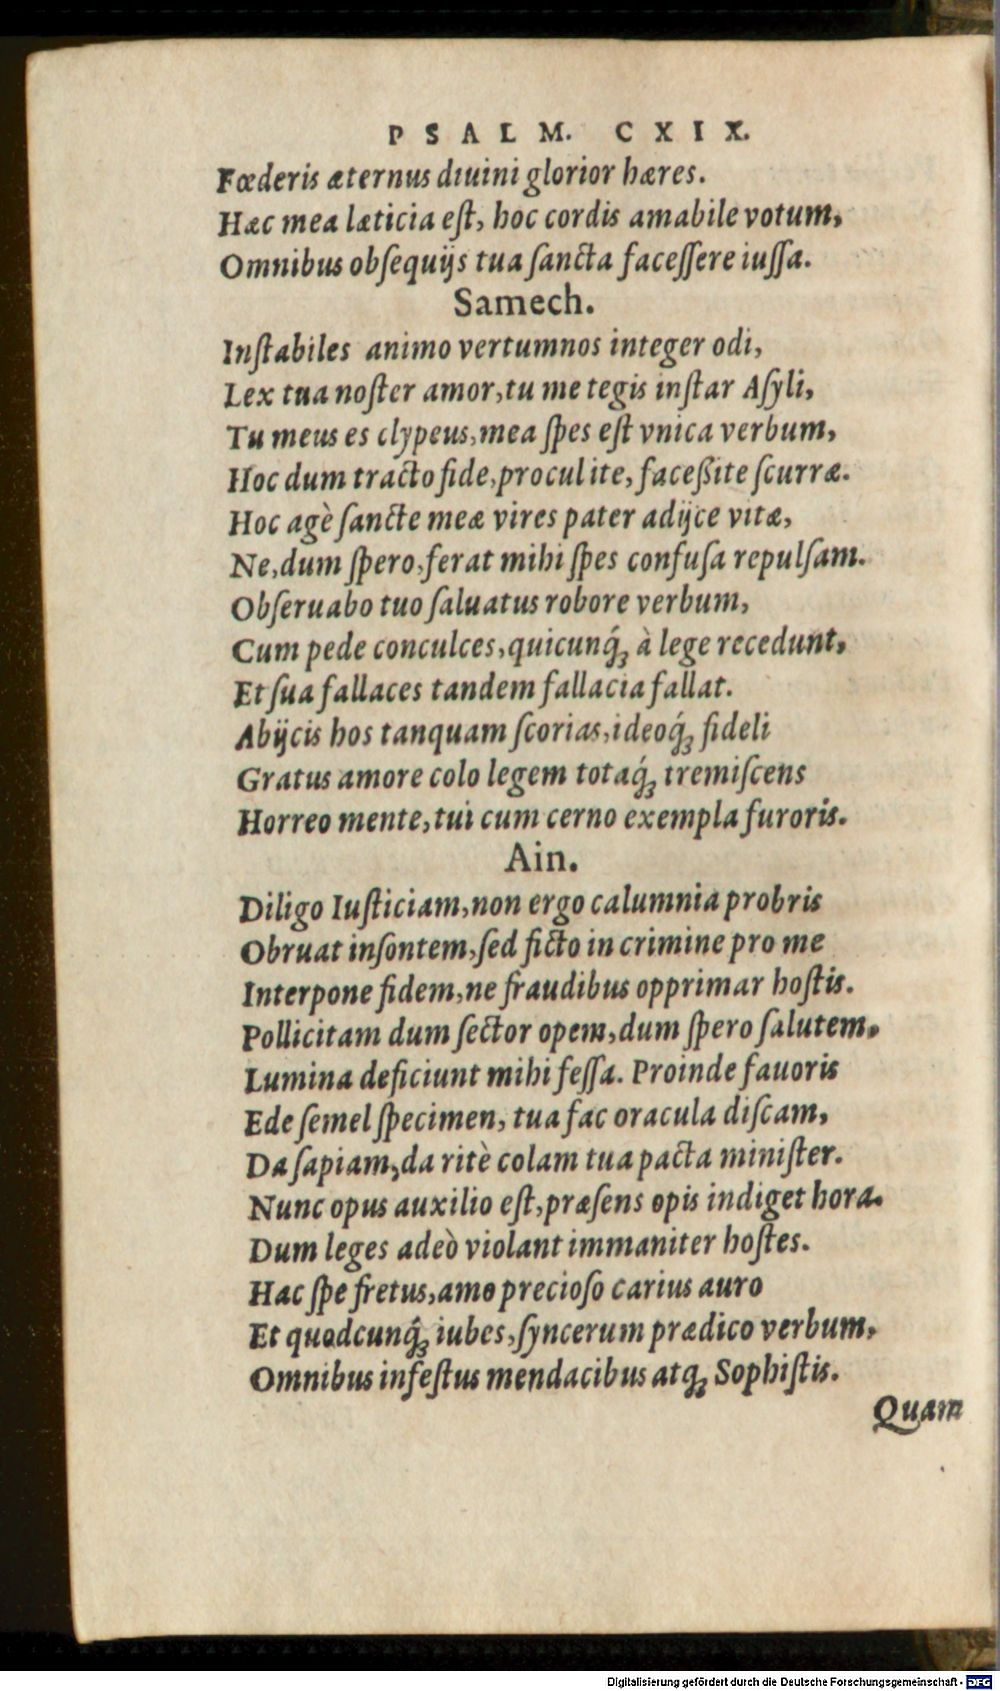 PSALM. CXIX.
Fœderis æternus diuini glorior hæres.
Hæc mea læticia eſt, hoc cordis amabile votum,
Omnibus obſequijs tua ſancta faceſſere iuſſa.
Samech.
Inſtabiles animo vertumnos integer odi,
Lex tua noſter amor, tu me tegis inſtar Aſyli,
Tu meus es clypeus, mea ſpes eſt vnica verbum,
Hoc dum tracto fide, procul ite, faceßite ſcurræ.
Hoc agè ſancte meæ vires pater adijce vitæ,
Ne, dum ſpero, ferat mihi ſpes confuſa repulſam.
Obſeruabo tuo ſaluatus robore verbum,
Cum pede conculces, quicunq́ꝫ à lege recedunt,
Et ſua fallaces tandem fallacia fallat.
Abijcis hos tanquam ſcorias, ideoq́ꝫ fideli
Gratus amore colo legem totaq́ꝫ tremiſcens
Horreo mente, tui cum cerno exempla furoris.
Ain.
Diligo Iuſticiam, non ergo calumnia probris
Obruat inſontem, ſed ficto in crimine pro me
Interpone fidem, ne fraudibus opprimar hoſtis.
Pollicitam dum ſector opem, dum ſpero ſalutem,
Lumina deficiunt mihi feſſa. Proinde fauoris
Ede ſemel ſpecimen, tua fac oracula diſcam,
Da ſapiam, da ritè colam tua pacta miniſter.
Nunc opus auxilio eſt, præſens opis indiget hora.
Dum leges adeò violant immaniter hoſtes.
Hac ſpe fretus, amo precioſo carius auro
Et quodcunq́ꝫ iubes, ſyncerum prædico verbum,
Omnibus infeſtus mendacibus atqꝫ Sophiſtis.
Quam
Digitalisierung gefördert durch die Deutsche Forschungsgemeinschaft - DFG